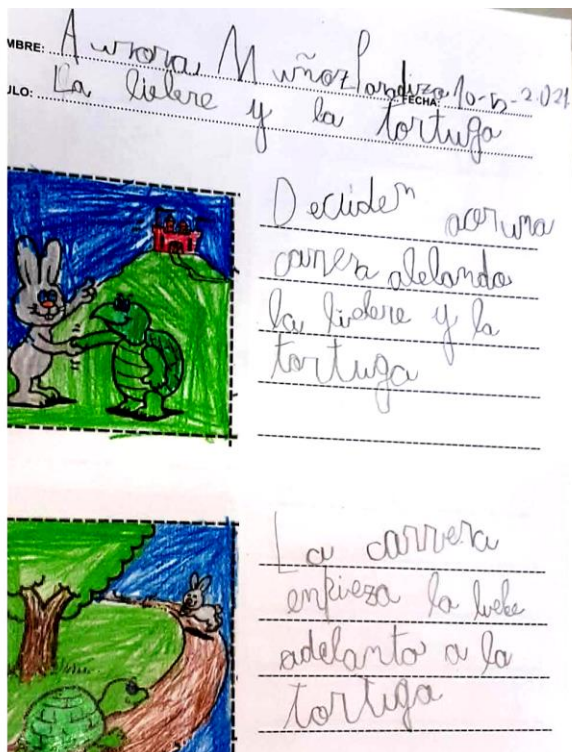 MBRE: Aurora Muñoz Paradiza FECHA: 10-5-2021
ULO: La liebre y la tortuga
Deciden acer una
carrera alelando
la liebre y la
tortuga
La carrera
enpieza la liebe
adelanta a la
tortuga